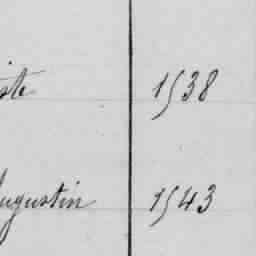 iste 1538
Augustin 1543